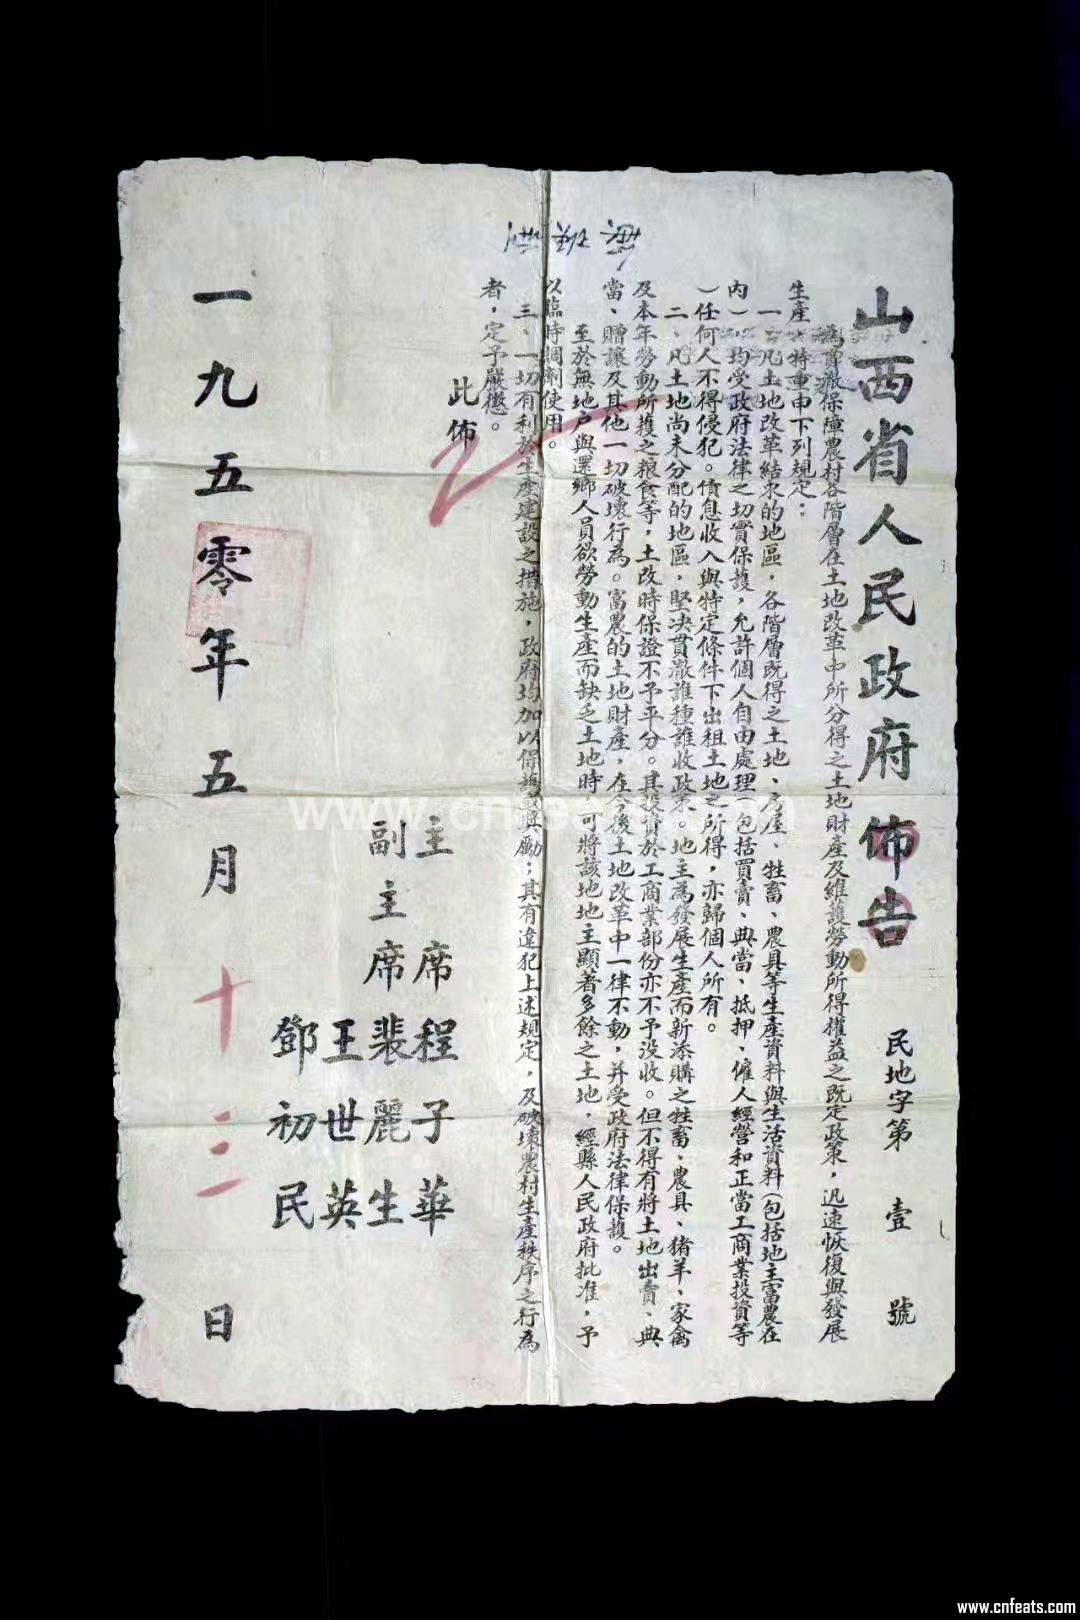 山西省人民政府佈告
民地字第壹號
為貫澈保障農村各階層在土地改革中所分得之土地財產及維護勞動所得權益之既定政策，迅速恢復與發展
生產，特重申下列規定：
一、凡土地改革結束的地區，各階層既得之土地、房屋、牲畜、農具等生產資料與生活資料(包括地主富農在
內)均受政府法律之切實保護，允許個人自由處理(包括買賣、典當、抵押、僱人經營和正當工商業投資等
)任何人不得侵犯。債息收入與特定條件下出租土地之所得，亦歸個人所有。
二、凡土地尚未分配的地區，堅決貫澈誰種誰收政策。地主為發展生產而新添購之牲畜、農具、豬羊、家禽
及本年勞動所獲之粮食等，土改時保證不予平分。其投資於工商業部份亦不予沒收。但不得有將土地出賣、典
當、贈讓及其他一切破壞行為。富農的土地財產，在今後土地改革中一律不動，并受政府法律保護。
至於無地户與還鄉人員欲勞動生產而缺乏土地時，可將該地地主顯著多餘之土地，經縣人民政府批准，予
以臨時調劑使用。
三、一切有利於生產建設之措施，政府均加以保護與獎勵；其有違犯上述規定，及破壞農村生產秩序之行為
者，定予嚴懲。
此佈
主席 程子華
副主席 裴麗生
王世英
鄧初民
一九五零年五月十三日
www.cnfeats.com
www.cnfeats.com